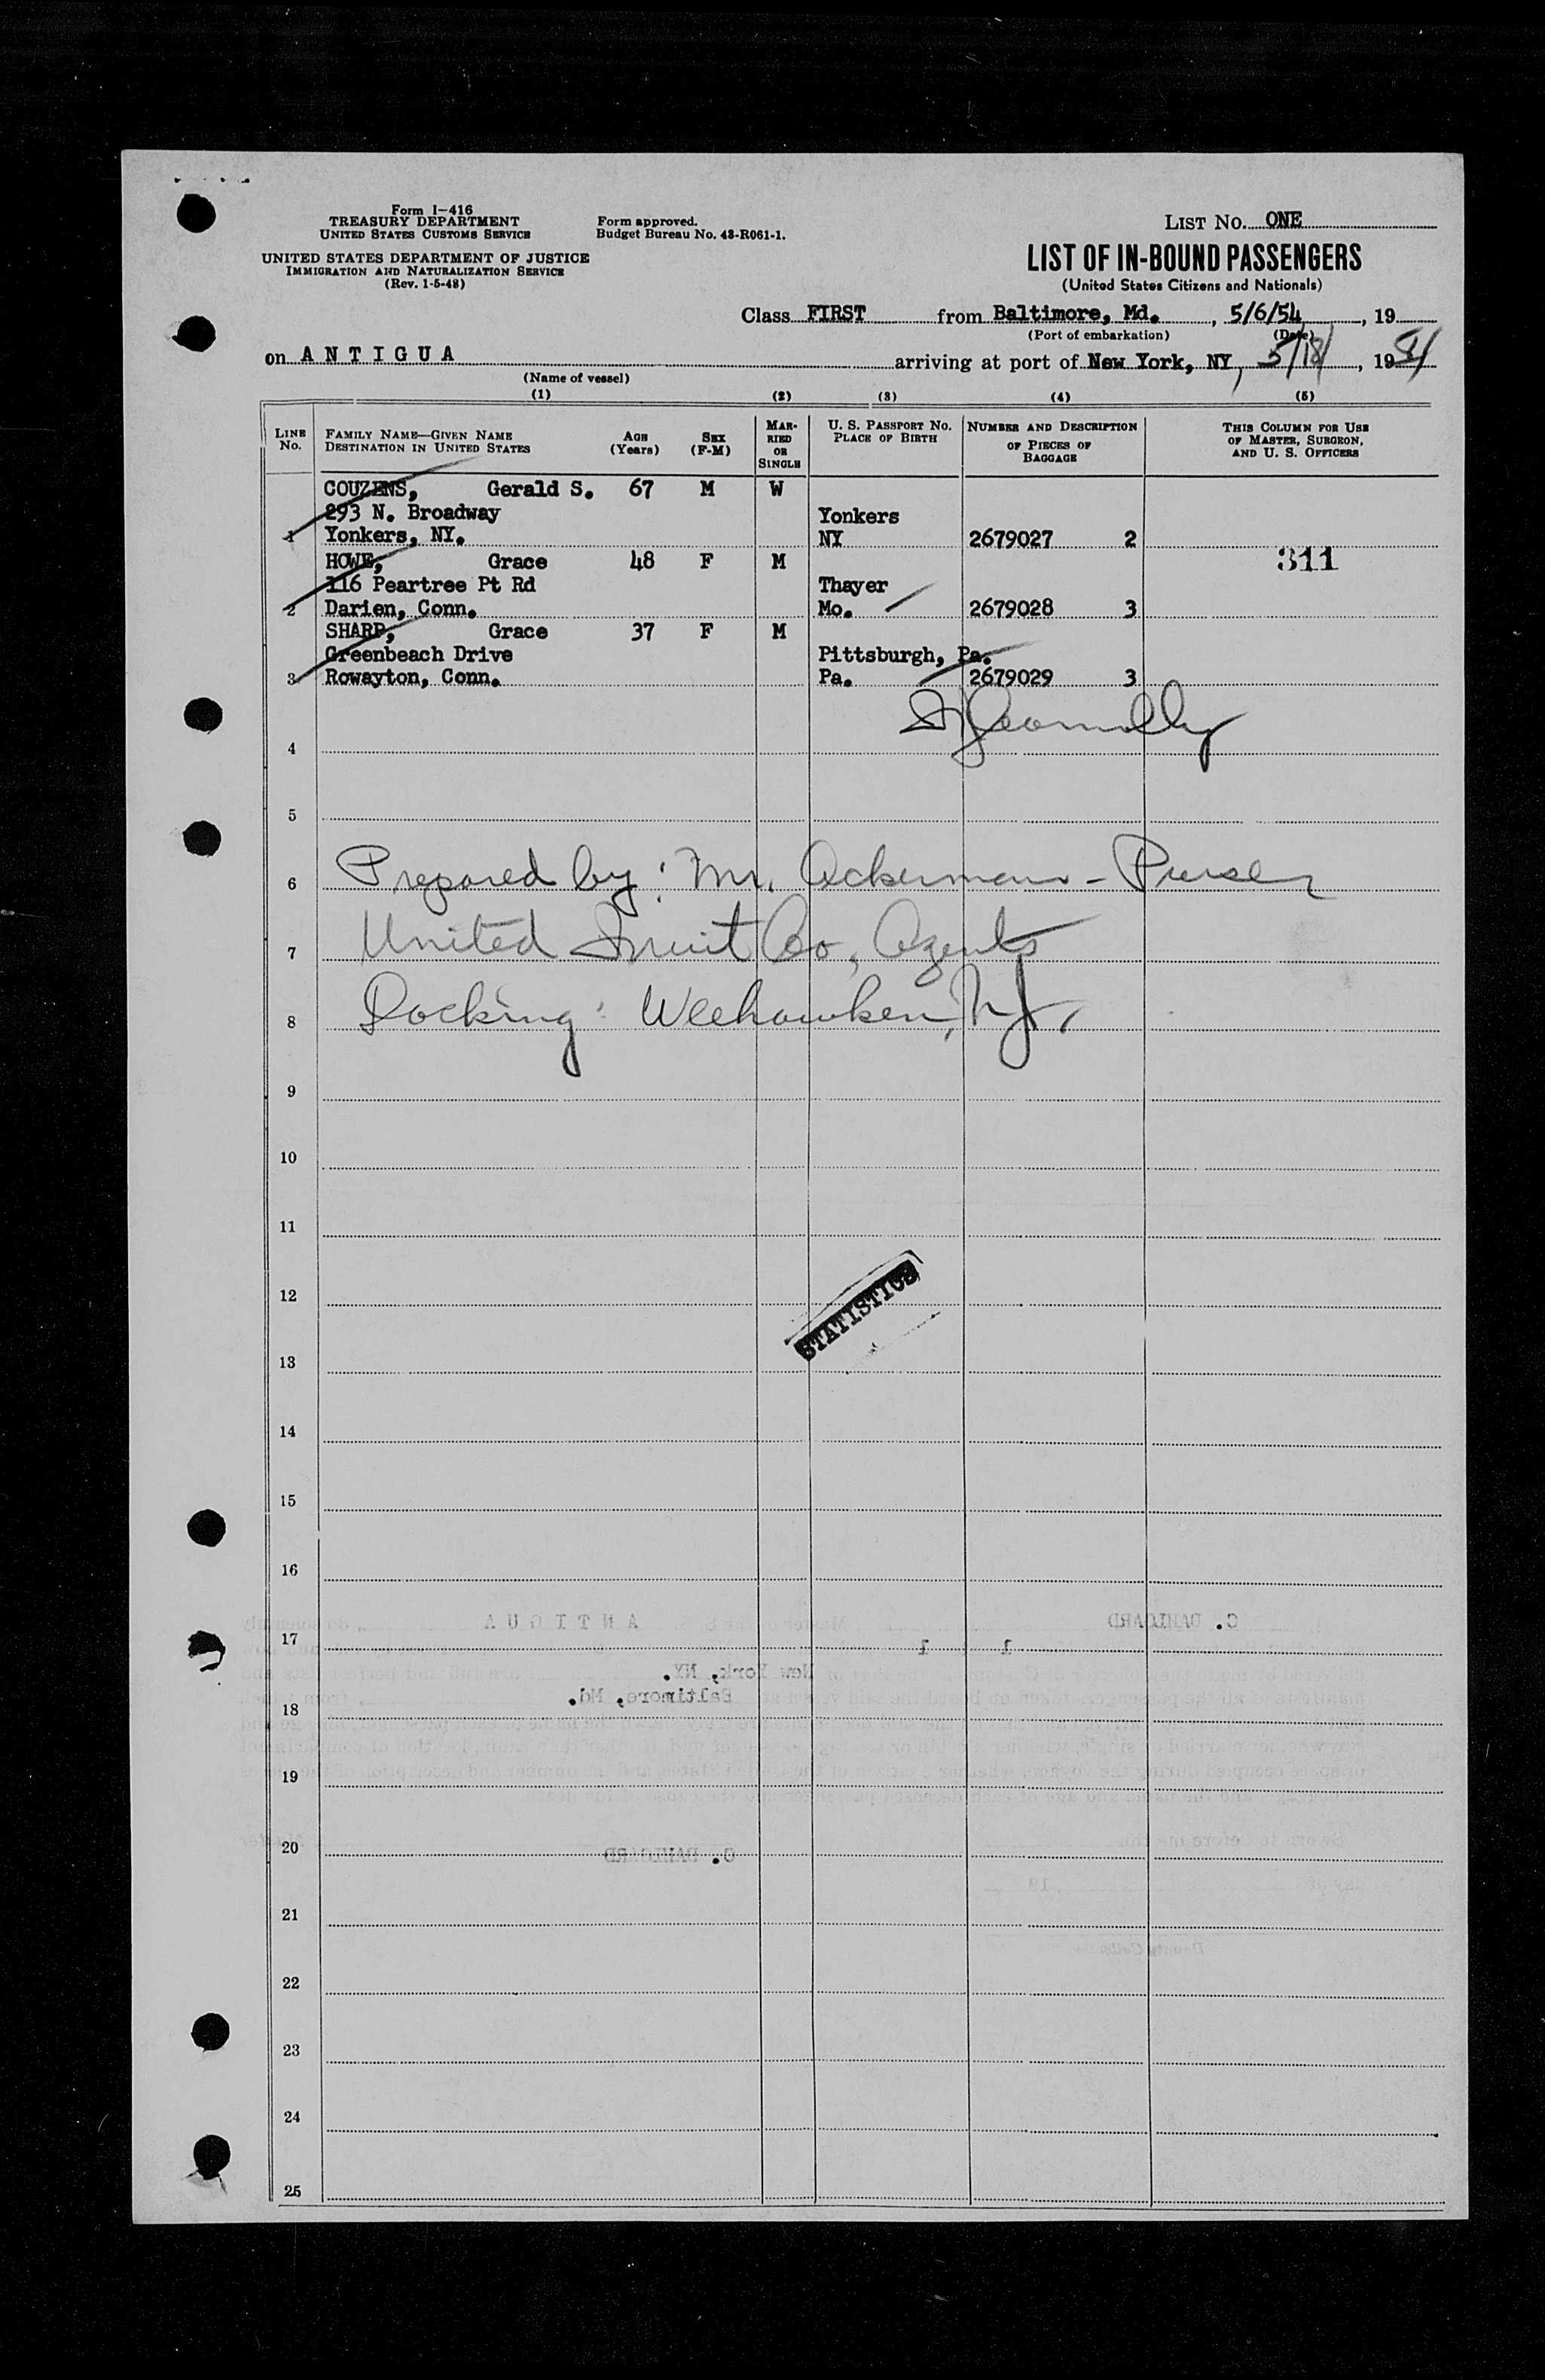 Form I-416
TREASURY DEPARTMENT
UNITED STATES CUSTOMS SERVICE
UNITED STATES DEPARTMENT OF JUSTICE
IMMIGRATION AND NATURALIZATION SERVICE
(Rev. 1-5-48)
Form approved.
Budget Bureau No. 43-R061-1.
LIST No. ONE
LIST OF IN-BOUND PASSENGERS
(United States Citizens and Nationals)
Class FIRST from Baltimore, Md., 5/6/54, 19
(Port of embarkation) (Date)
on ANTIGUA arriving at port of New York, NY, 5/18/, 1954
(Name of vessel)
(1) (2) (3) (4) (5)
LINE No. FAMILY NAME—GIVEN NAME DESTINATION IN UNITED STATES AGE (Years) SEX (F-M) MARRIED OR SINGLE U. S. PASSPORT No. PLACE OF BIRTH NUMBER AND DESCRIPTION OF PIECES OF BAGGAGE THIS COLUMN FOR USE OF MASTER, SURGEON, AND U. S. OFFICERS
COUZENS, Gerald S. 67 M W
293 N. Broadway Yonkers
1 Yonkers, NY. NY 2679027 2
HOWE, Grace 48 F M 311
116 Peartree Pt Rd Thayer
2 Darien, Conn. Mo. 2679028 3
SHARP, Grace 37 F M
Greenbeach Drive Pittsburgh, Pa.
3 Rowayton, Conn. Pa. 2679029 3
4
5
6 Prepared by: Mr. Ackerman - Purser
7 United Fruit Co, Agents
8 Docking: Weehawken, NJ.
9
10
11
12
STATISTICS
13
14
15
16
ANTIGUA C. DAHLGARD
17 1 1
New York, NY.
Baltimore, Md.
18
19
20 C. DAHLGARD
21
22
23
24
25